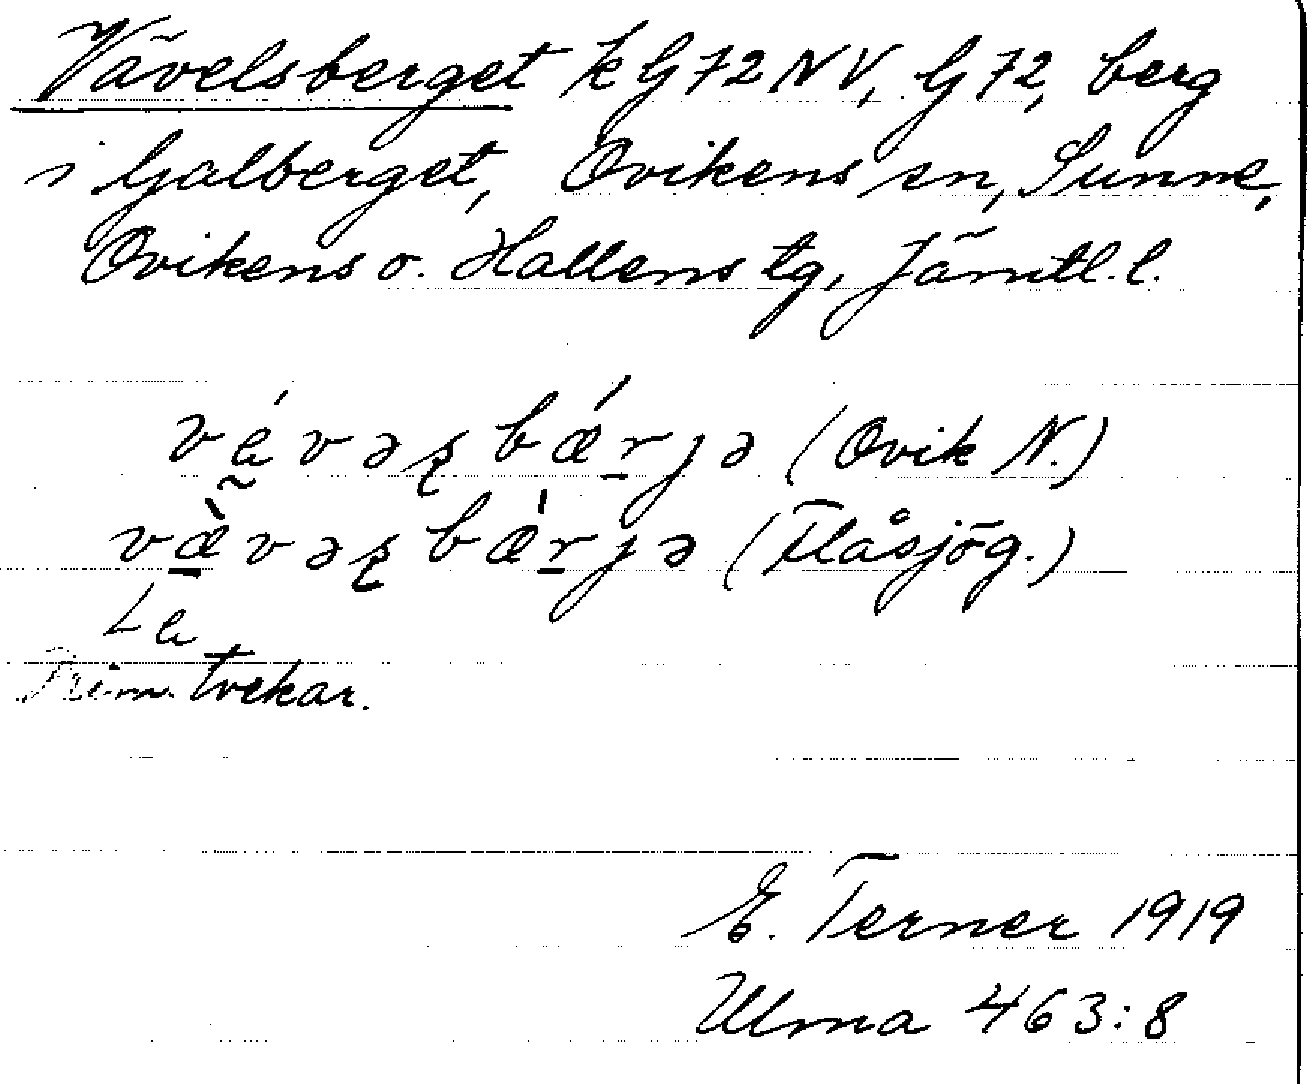 Vävelsberget k G 72 NV, G 72, berg
i Galberget, Ovikens sn, Sunne,
Ovikens o. Hallens tg, Jämtl. l.
(Ovik N.)
(Flåsjög.)
tvekar.
E. Terner 1919
Ulma 463:8